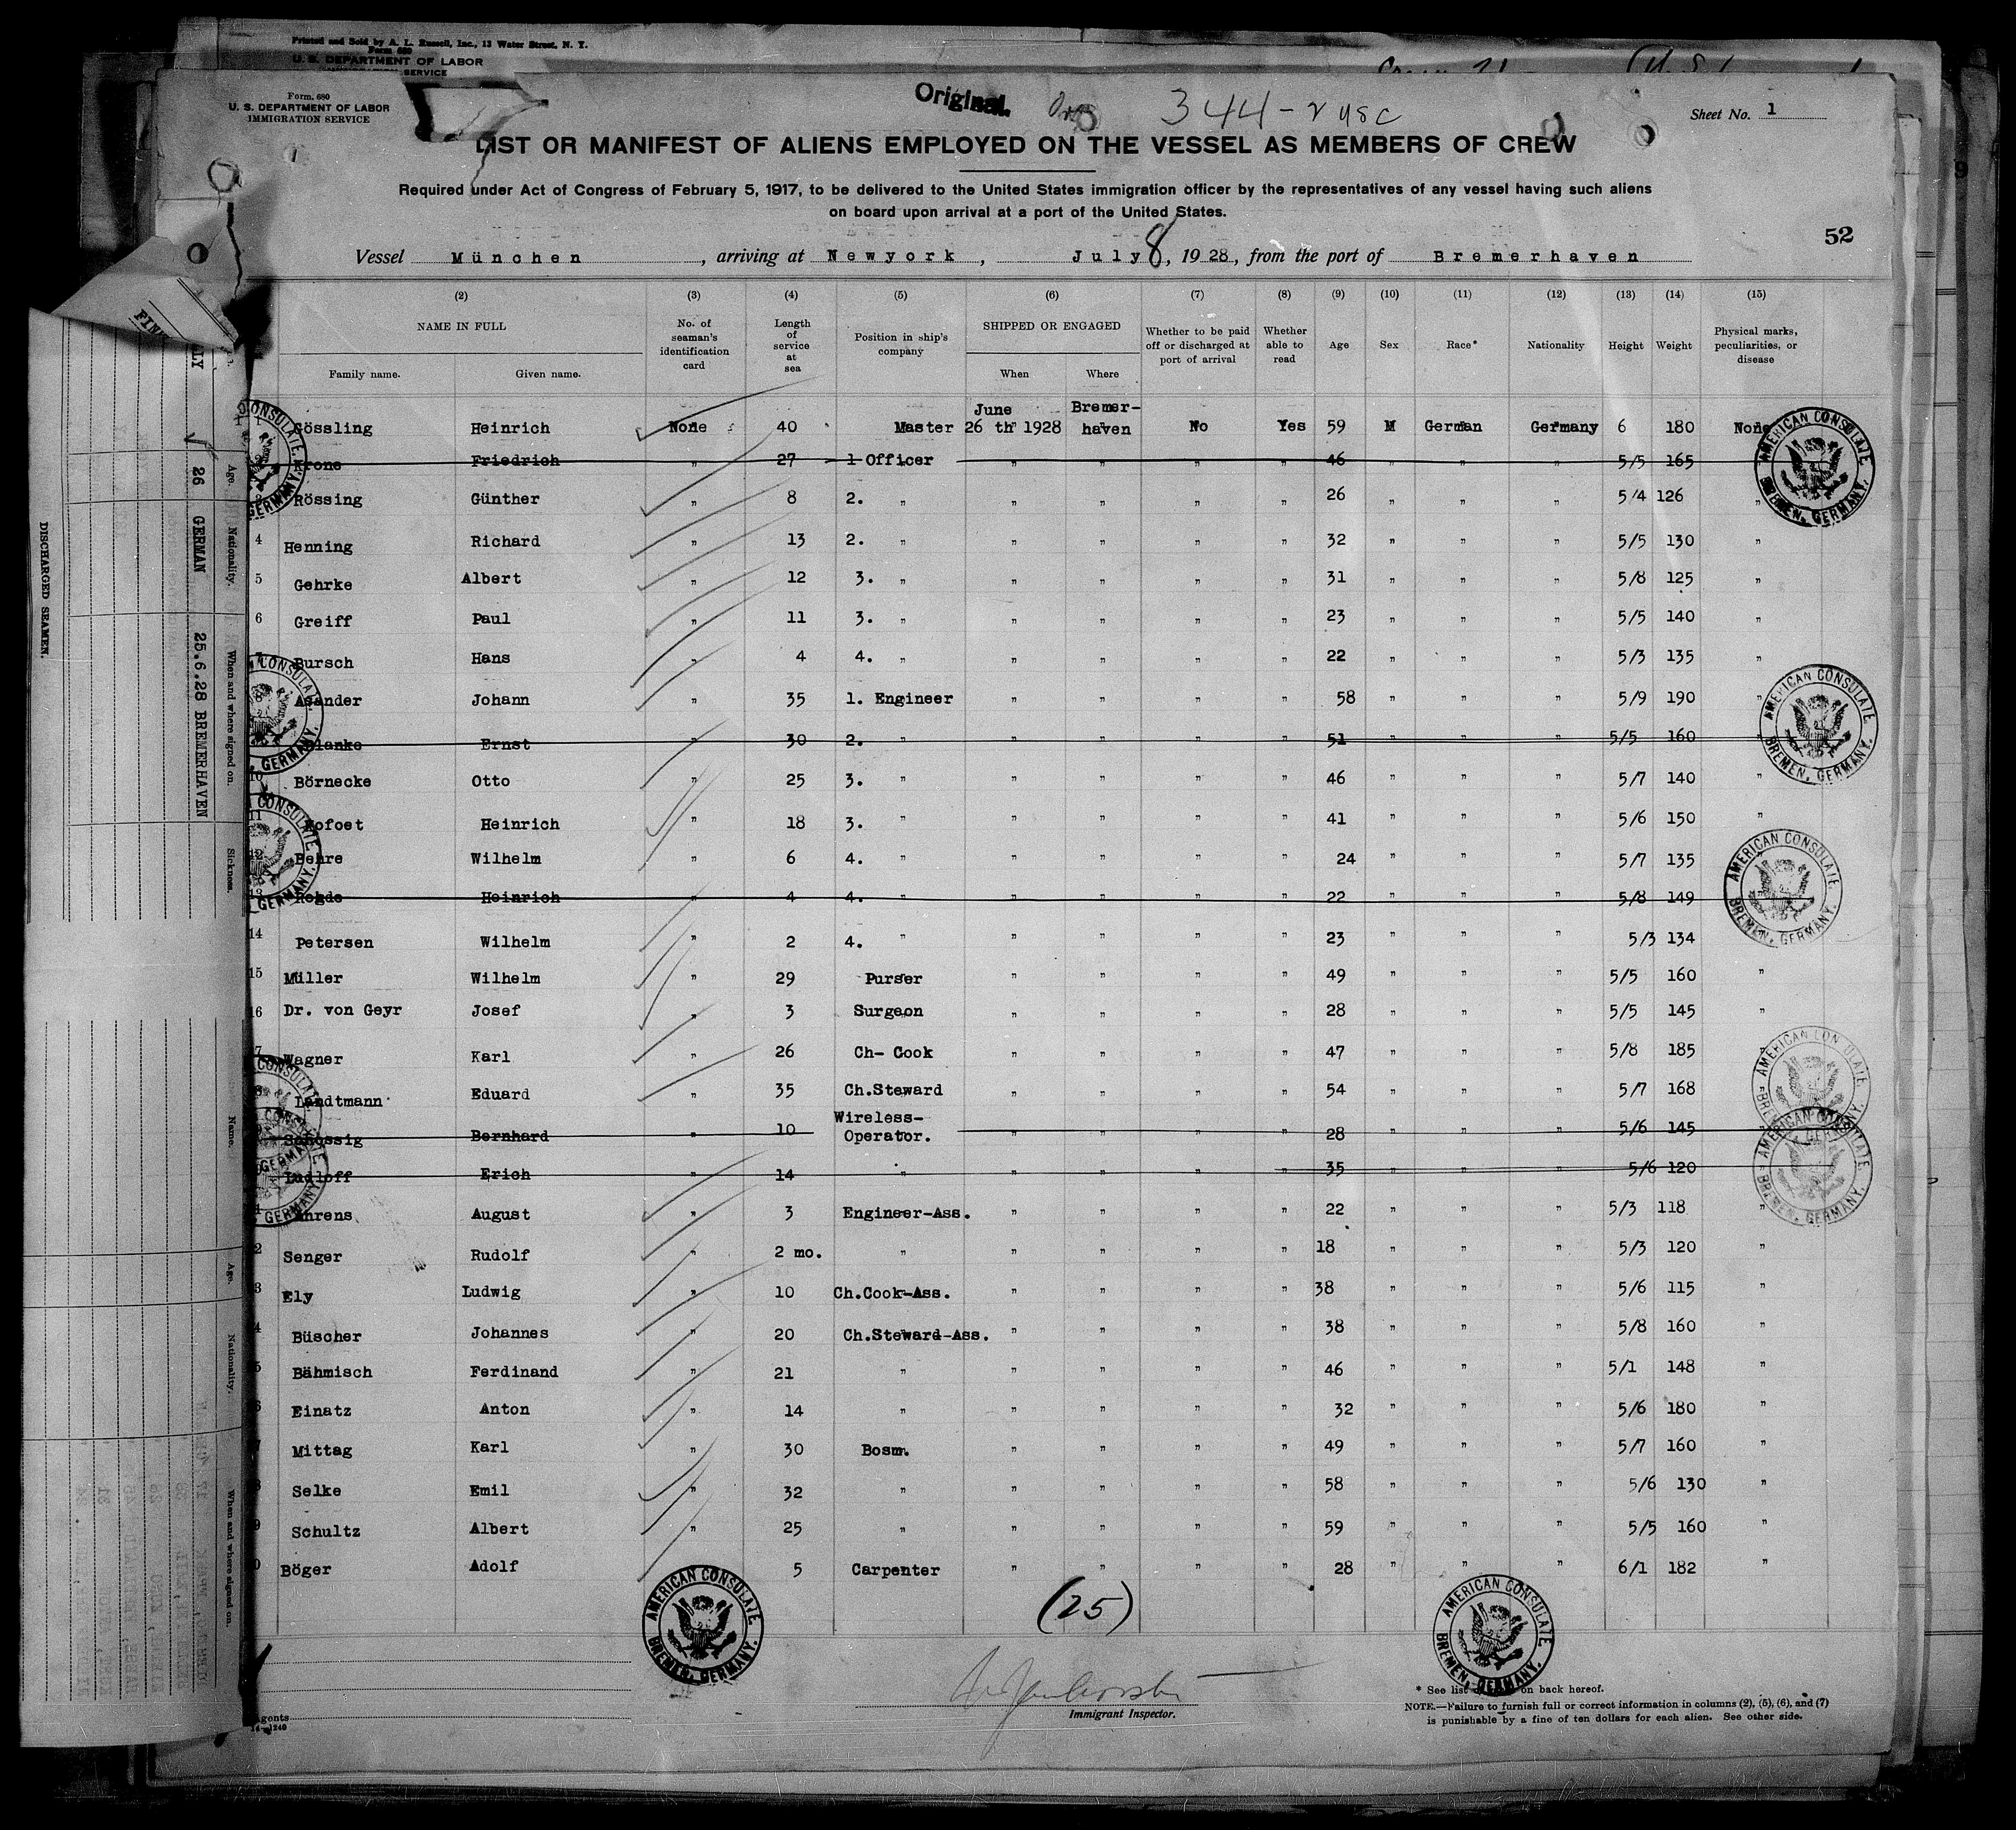 Printed and Sold by A. L. Russell, Inc., 13 Water Street, N. Y.
Form 680
U. S. DEPARTMENT OF LABOR
SERVICE
Form. 680
U. S. DEPARTMENT OF LABOR
IMMIGRATION SERVICE
Original.
344-
Sheet No. 1
LIST OR MANIFEST OF ALIENS EMPLOYED ON THE VESSEL AS MEMBERS OF CREW
Required under Act of Congress of February 5, 1917, to be delivered to the United States immigration officer by the representatives of any vessel having such aliens
on board upon arrival at a port of the United States.
52
Vessel München, arriving at Newyork, July 8, 1928, from the port of Bremerhaven
(2) (3) (4) (5) (6) (7) (8) (9) (10) (11) (12) (13) (14) (15)
NAME IN FULL
Family name. Given name.
No. of seaman's identification card
Length of service at sea
Position in ship's company
SHIPPED OR ENGAGED
When Where
Whether to be paid off or discharged at port of arrival
Whether able to read
Age Sex Race* Nationality Height Weight
Physical marks, peculiarities, or disease
1 Gössling Heinrich None 40 Master June 26 th 1928 Bremerhaven No Yes 59 M German Germany 6 180 None
Krone Friedrich " 27 1 Officer " " " " 46 " " " 5/5 165
3 Rössing Günther " 8 2. " " " " " 26 " " " 5/4 126 "
4 Henning Richard " 13 2. " " " " " 32 " " " 5/5 130 "
5 Gehrke Albert " 12 3. " " " " " 31 " " " 5/8 125 "
6 Greiff Paul " 11 3. " " " " " 23 " " " 5/5 140 "
7 Bursch Hans " 4 4. " " " " " 22 " " " 5/3 135 "
8 Asander Johann " 35 1. Engineer " " " " 58 " " " 5/9 190 "
Blanke Ernst " 30 2. " " " " " 51 " " " 5/5 160 "
10 Börnecke Otto " 25 3. " " " " " 46 " " " 5/7 140 "
11 Heinrich " 18 3. " " " " " 41 " " " 5/6 150 "
12 Behre Wilhelm " 6 4. " " " " " 24 " " " 5/7 135
13 Rohde Heinrich " 4 4. " " " " " 22 " " " 5/8 149
14 Petersen Wilhelm " 2 4. " " " " " 23 " " " 5/3 134
15 Müller Wilhelm " 29 Purser " " " " 49 " " " 5/5 160 "
16 Dr. von Geyr Josef " 3 Surgeon " " " " 28 " " " 5/5 145 "
7 Wagner Karl " 26 Ch- Cook " " " " 47 " " " 5/8 185 "
8 Landtmann Eduard " 35 Ch.Steward " " " " 54 " " " 5/7 168 "
Schössig Bernhard " 10 Wireless-Operator. " " " " 28 " " " 5/6 145 "
Ludloff Erich " 14 " " " " " 35 " " " 5/6 120
1 Ahrens August " 3 Engineer-Ass. " " " " 22 " " " 5/3 118 "
2 Senger Rudolf " 2 mo. " " " " " 18 " " " 5/3 120 "
3 Ely Ludwig " 10 Ch.Cook-Ass. " " " " 38 " " " 5/6 115 "
4 Büscher Johannes " 20 Ch.Steward-Ass. " " " " 38 " " " 5/8 160 "
5 Bähmisch Ferdinand " 21 " " " " " 46 " " " 5/1 148 "
6 Einatz Anton " 14 " " " " " 32 " " " 5/6 180 "
7 Mittag Karl " 30 Bosm. " " " " 49 " " " 5/7 160 "
8 Selke Emil " 32 " " " " " 58 " " " 5/6 130 "
9 Schultz Albert " 25 " " " " " 59 " " " 5/5 160 "
0 Böger Adolf " 5 Carpenter " " " " 28 " " " 6/1 182 "
(25)
AMERICAN CONSULATE
BREMEN, GERMANY.
AMERICAN CONSULATE
BREMEN, GERMANY.
AMERICAN CONSULATE
BREMEN, GERMANY.
AMERICAN CONSULATE
BREMEN, GERMANY.
AMERICAN CONSULATE
BREMEN, GERMANY.
AMERICAN CONSULATE
BREMEN, GERMANY.
AMERICAN CONSULATE
BREMEN, GERMANY.
Immigrant Inspector.
* See list on back hereof.
NOTE.—Failure to furnish full or correct information in columns (2), (5), (6), and (7)
is punishable by a fine of ten dollars for each alien. See other side.
Agents
14—1240
DISCHARGED SEAMEN.
26 GERMAN 25.6.28 BREMERHAVEN
Age. Nationality. When and where signed on. Sickness.
Name. Age. Nationality. When and where signed on.